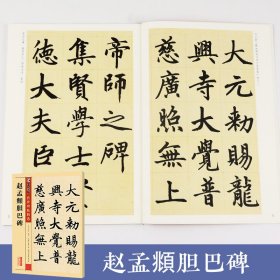 大元勅賜龍
興寺大覺普
慈廣照無上
帝師之碑
集賢學士
德大夫臣
大元勅賜龍
興寺大覺普
慈廣照無上
赵孟頫胆巴碑
赵孟頫胆巴碑